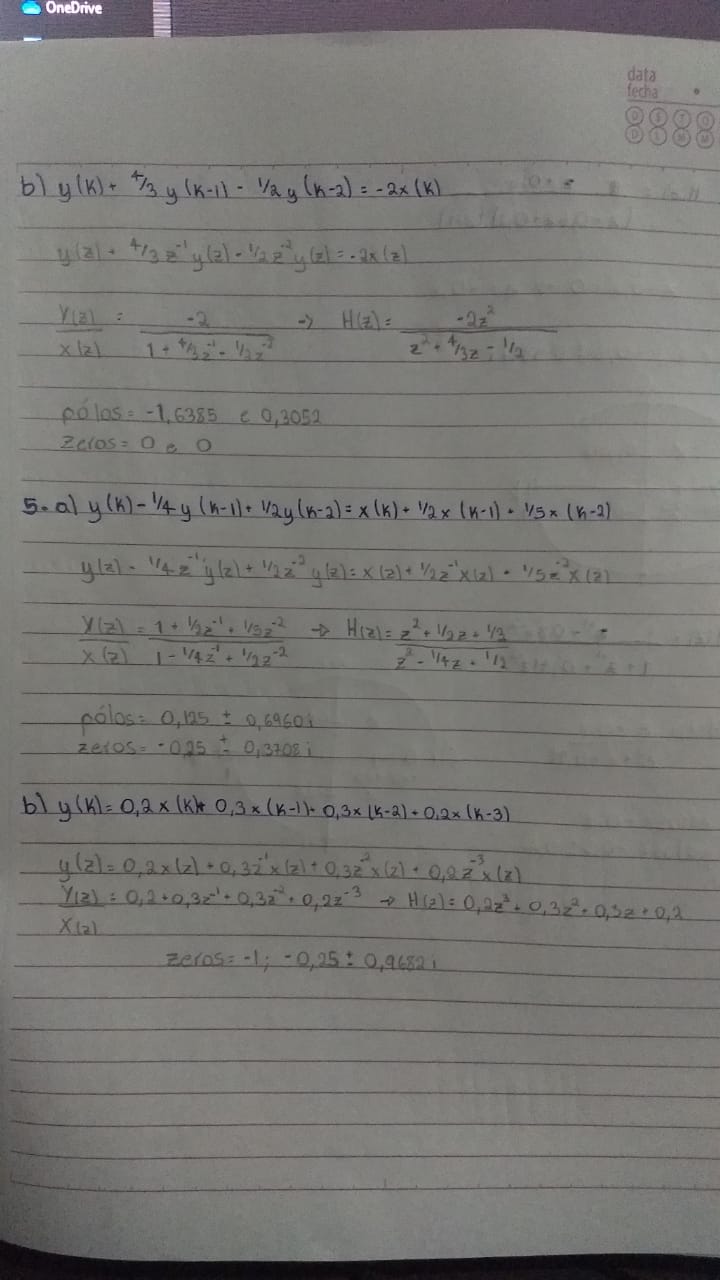 OneDrive
data
fecha
b) y(k) + 4/3 y(k-1) - 1/2 y(k-2) = -2x(k)
y(z) + 4/3 z⁻¹ y(z) - 1/2 z⁻² y(z) = -2x(z)
Y(z) = -2 → H(z) = -2z²
X(z) 1 + 4/3z⁻¹ - 1/2z⁻² z² + 4/3z - 1/2
pólos = -1,6385 e 0,3052
zeros = 0 e 0
5. a) y(k) - 1/4 y(k-1) + 1/2 y(k-2) = x(k) + 1/2 x(k-1) + 1/5 x(k-2)
y(z) - 1/4 z⁻¹ y(z) + 1/2 z⁻² y(z) = x(z) + 1/2 z⁻¹ x(z) + 1/5 z⁻² x(z)
Y(z) = 1 + 1/2z⁻¹ + 1/5z⁻² → H(z) = z² + 1/2z + 1/3
X(z) 1 - 1/4z⁻¹ + 1/2z⁻² z² - 1/4z + 1/2
pólos = 0,125 ± 0,6960i
zeros = -0,25 ± 0,3708i
b) y(k) = 0,2x(k) + 0,3x(k-1) + 0,3x(k-2) + 0,2x(k-3)
y(z) = 0,2x(z) + 0,3z⁻¹x(z) + 0,3z⁻²x(z) + 0,2z⁻³x(z)
Y(z) = 0,2 + 0,3z⁻¹ + 0,3z⁻² + 0,2z⁻³ → H(z) = 0,2z³ + 0,3z² + 0,3z + 0,2
X(z)
zeros = -1; -0,25 ± 0,9682i